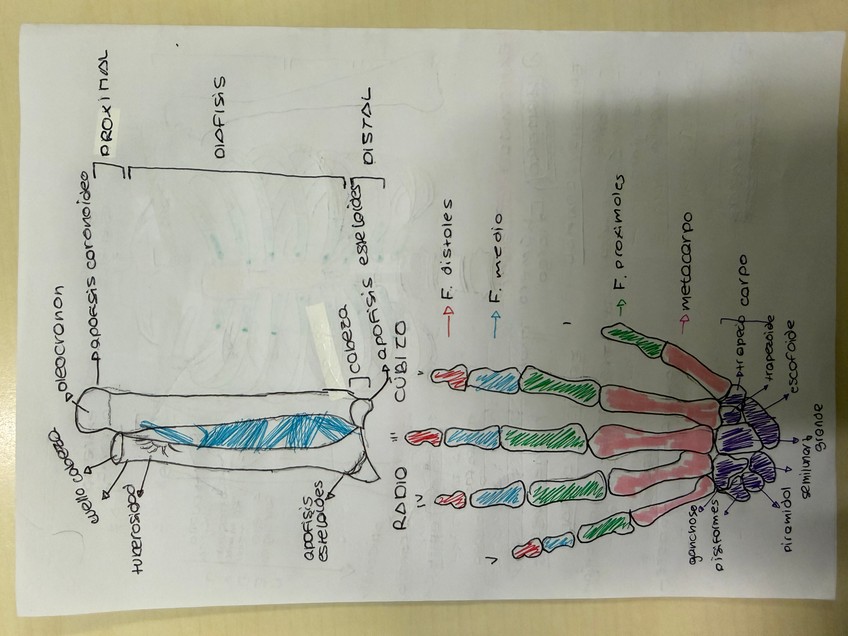 PROXIMAL
DIAFISIS
DISTAL
apofisis coronoideo
oleocranon
cuello cabeza
tuberosidad
cabeza
apofisis esteloides
apofisis
esteloides
CUBITO
RADIO
F. distales
F. medio
F. proximales
metacarpo
carpo
III
IV
V
trapecio
trapezoide
escafoide
grande
semilunar
piramidal
pisiformes
ganchoso